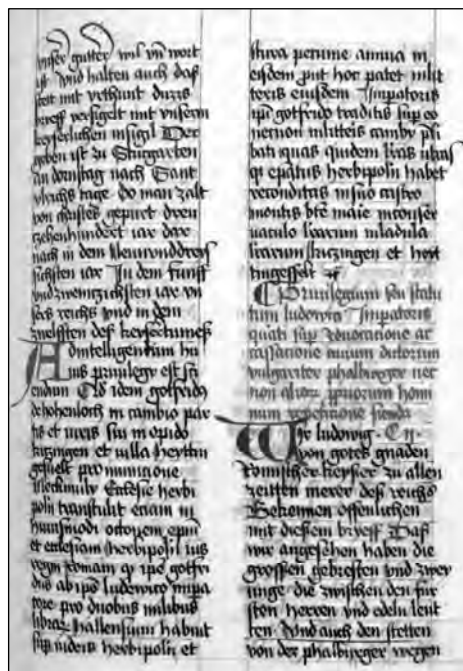 vnser gutter wil vn wort
ist Vnd halten auch das
stett mit vrkhunt
brieff versigelt mit vnserm
keyserlichen insigil Der
geben ist zu Stutgarten
an dornstag nach Sant
vlrichs tage do man zalt
von christes gepurt dreu
zehenhundert iar dar
nach in dem Newnunddreys
sichsten iar In dem funff
vndzweintzichsten iar vn
sers reichs vnd in dem
zwelfften des keysertumes
Ad intelligendum hu
ius priuilege est sci
endum idem gotfrid9
de hohenloch in cambio par
tis et iuris sui in opido
kitzingen et villa heytin
gesuelt pro municione
Ecclesie herbi
poli transtulit etiam in
huiusmodi ottonem epm
et ecclesiam herbipoli ius
qd ipe gotfri
dus ab ipo ludewico impa
tore pro duobus milibus
librar hallensium habuit
sup iudeis herbipoli et
stura petunie annua in
eisdem put hoc patet in litt
teris eiusdem Imperatoris
ipi gotfrido traditis sup eo
necnon in litteis camby
bati quas quidem lras
qi epatus herbipoli habet
reconditas in suo castro
montis bte marie in conser
uatulo lrarum in ladula
lrarum kitzingen et heyt
tingesfelt
Priuilegium seu statu
tum ludowici Imperatoris
quasi sup reuocacione ac
cassacione aurum dictorum
vulgariter phalburger nec
non alior priorum homi
num repeticione fienda
Wir ludowig
von gotes gnaden
romischer keyser zu allen
zeitten merer des reichs
Bekennen offenlichen
mit diesem bryeff Das
wir angesehen haben die
grossen gebresten vnd zwey
unge die zwischen den fur
sten herren vnd edeln leut
ten Vnd auch den stetten
von der phalburger wegen